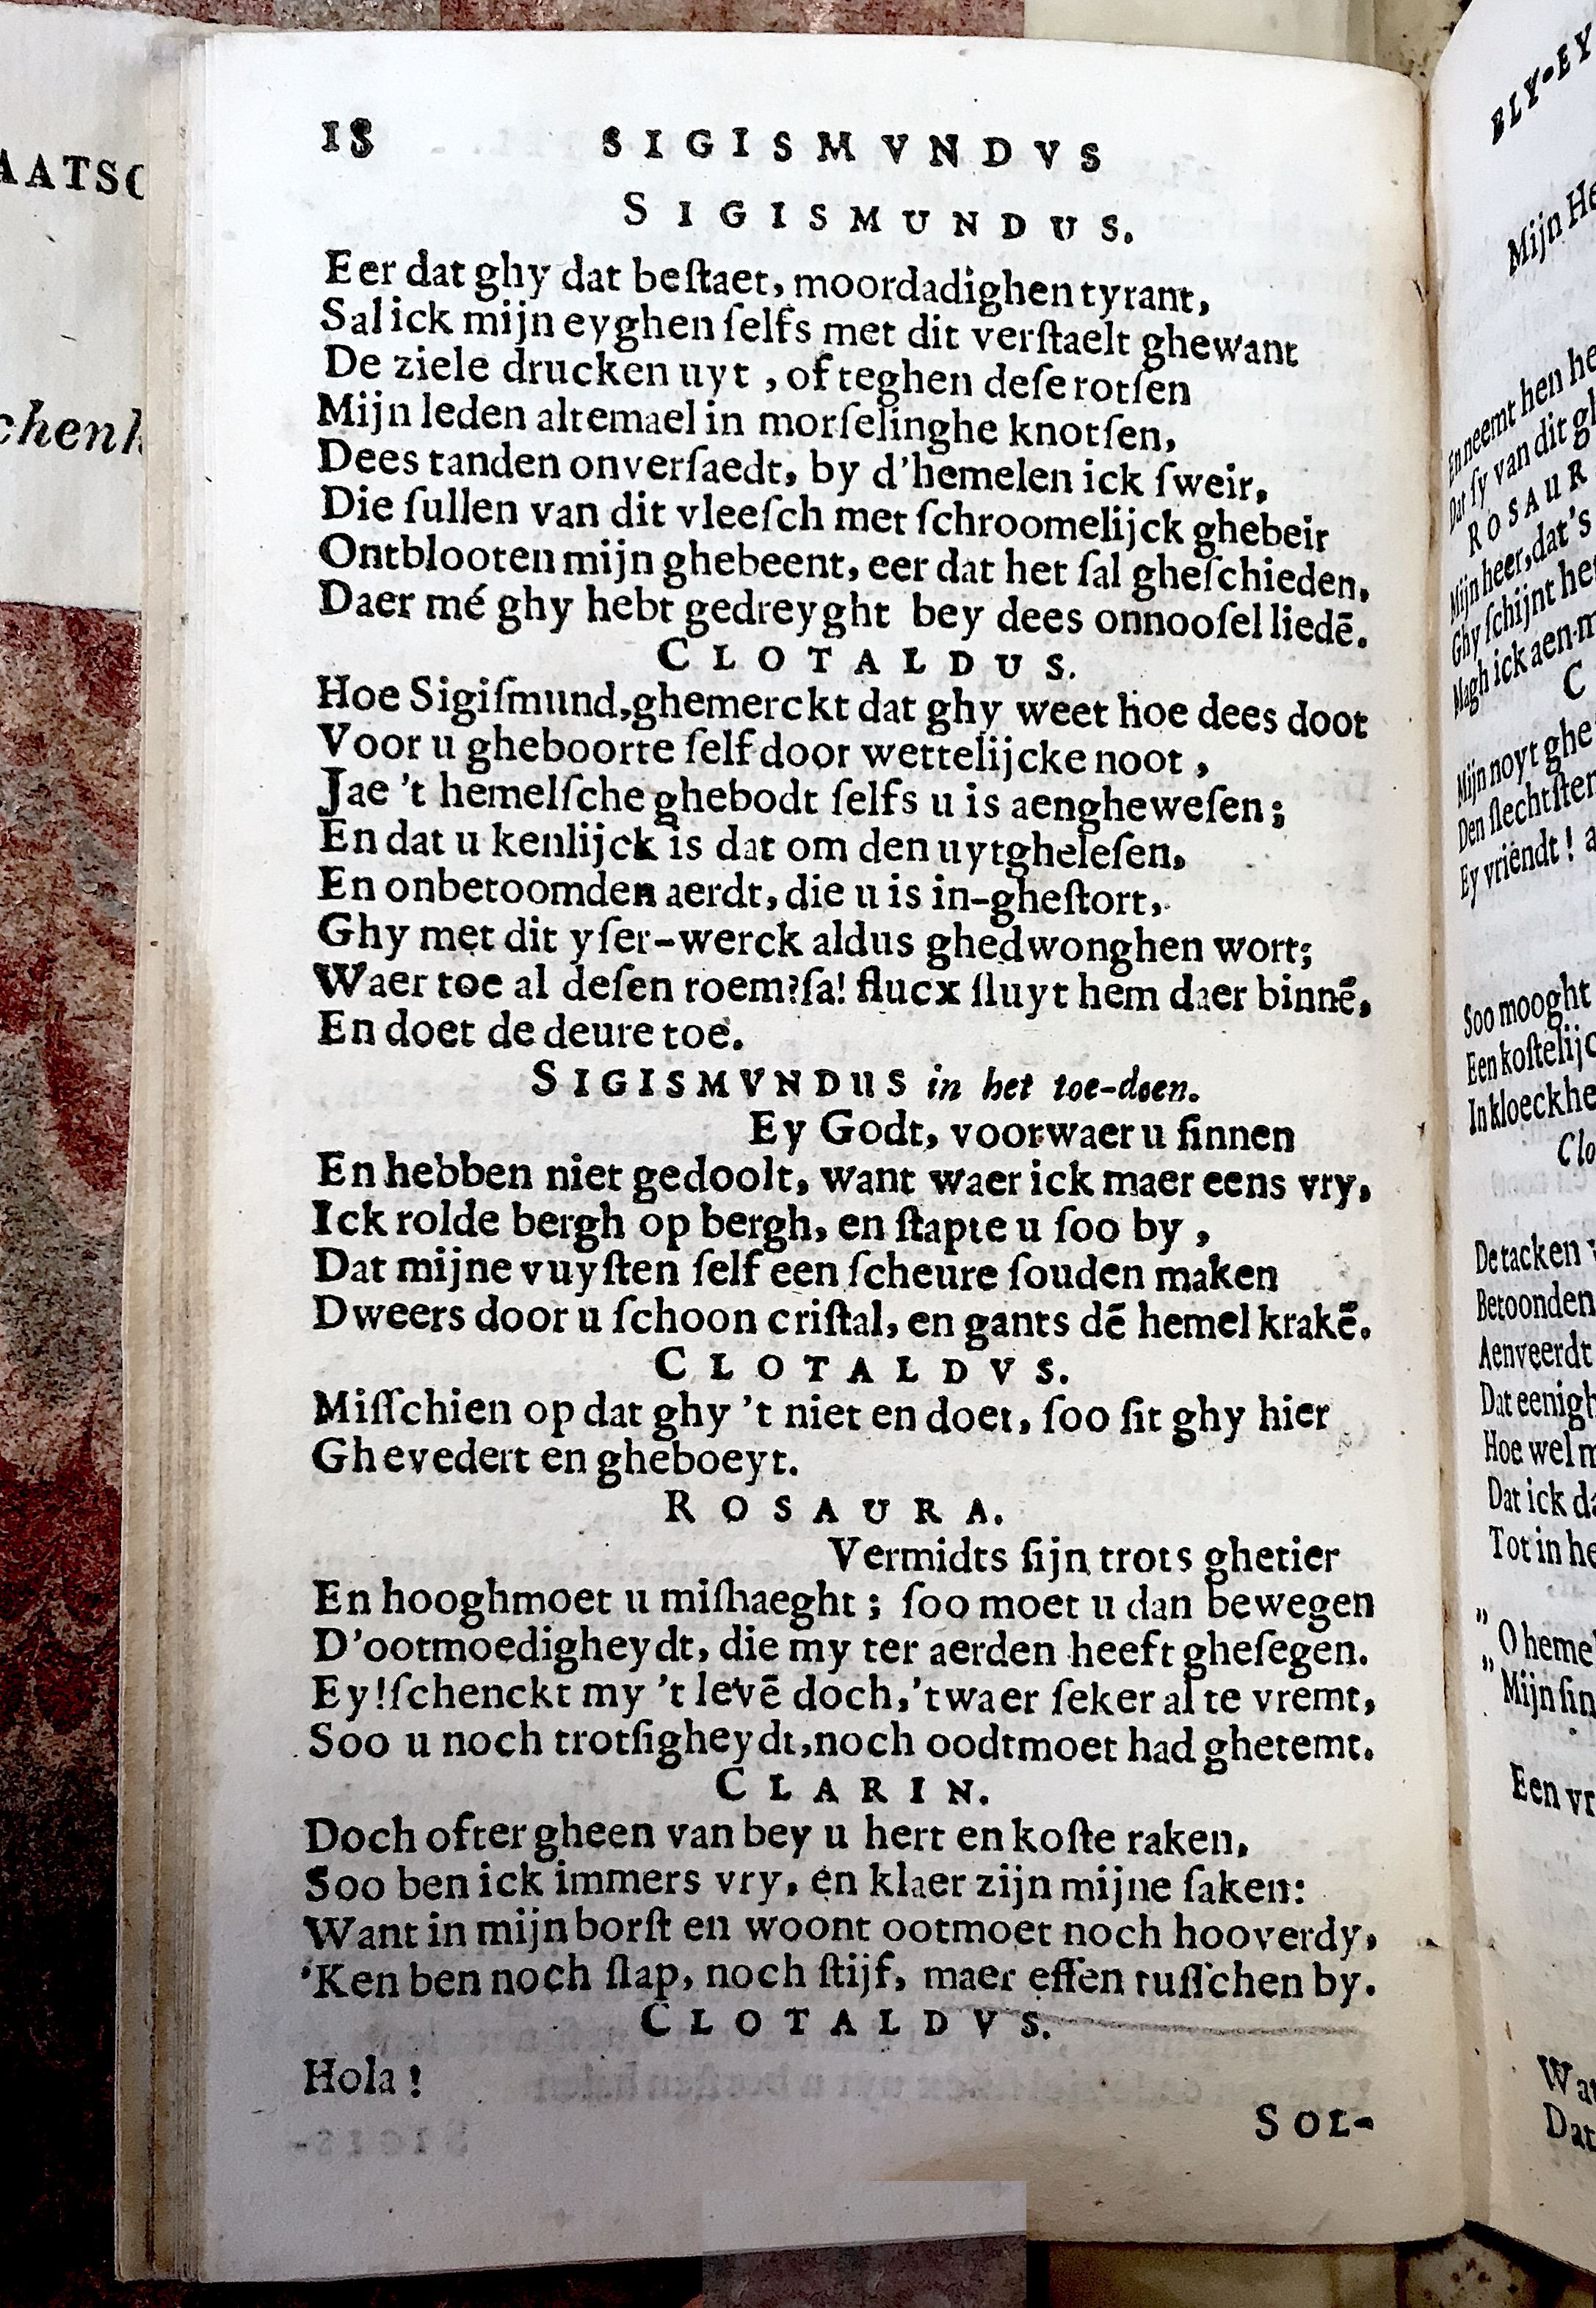 18 SIGISMVNDVS
SIGISMUNDUS.
Eer dat ghy dat beſtaet, moordadighen tyrant,
Sal ick mijn eyghen ſelfs met dit verſtaelt ghewant
De ziele drucken uyt, of teghen deſe rotſen
Mijn leden altemael in morſelinghe knotſen,
Dees tanden onverſaedt, by d'hemelen ick ſweir,
Die ſullen van dit vleeſch met ſchroomelijck ghebeir
Ontblooten mijn ghebeent, eer dat het ſal gheſchieden,
Daer mé ghy hebt gedreyght bey dees onnooſel liedē.
CLOTALDUS.
Hoe Sigiſmund, ghemerckt dat ghy weet hoe dees doot
Voor u gheboorte ſelf door wettelijcke noot,
Jae 't hemelſche ghebodt ſelfs u is aengheweſen;
En dat u kenlijck is dat om den uytgheleſen,
En onbetoomden aerdt, die u is in-gheſtort,
Ghy met dit yſer-werck aldus ghedwonghen wort;
Waer toe al deſen roem? ſa! flucx ſluyt hem daer binnē,
En doet de deure toe.
SIGISMVNDUS in het toe-doen.
Ey Godt, voorwaer u ſinnen
En hebben niet gedoolt, want waer ick maer eens vry,
Ick rolde bergh op bergh, en ſtapte u ſoo by,
Dat mijne vuyſten ſelf een ſcheure ſouden maken
Dweers door u ſchoon criſtal, en gants dē hemel krakē.
CLOTALDVS.
Miſſchien op dat ghy 't niet en doet, ſoo ſit ghy hier
Ghevedert en gheboeyt.
ROSAURA.
Vermidts ſijn trots ghetier
En hooghmoet u miſhaeght; ſoo moet u dan bewegen
D'ootmoedigheydt, die my ter aerden heeft gheſegen.
Ey! ſchenckt my 't levē doch, 't waer ſeker al te vremt,
Soo u noch trotſigheydt, noch oodtmoet had ghetemt.
CLARIN.
Doch ofter gheen van bey u hert en koſte raken,
Soo ben ick immers vry, en klaer zijn mijne ſaken:
Want in mijn borſt en woont ootmoet noch hooverdy,
'Ken ben noch ſlap, noch ſtijf, maer effen tuſſchen by.
CLOTALDVS.
Hola!
SOL-
AATSC
chenk
BLY-EY
Mijn He
En neemt hen he
Dat ſy van dit gl
ROSAUR
Mijn heer, dat's
Ghy ſchijnt het
Magh ick aen m
C
Mijn noyt ghe
Den ſlechtſten
Ey vriendt! a
Soo mooght
Een koſtelijc
In kloeckhe
Clo
De tacken v
Betoonden
Aenveerdt
Dat eenigh
Hoe wel m
Dat ick da
Tot in he
" O hemel
" Mijn ſin
Een vr
Wa
Dat